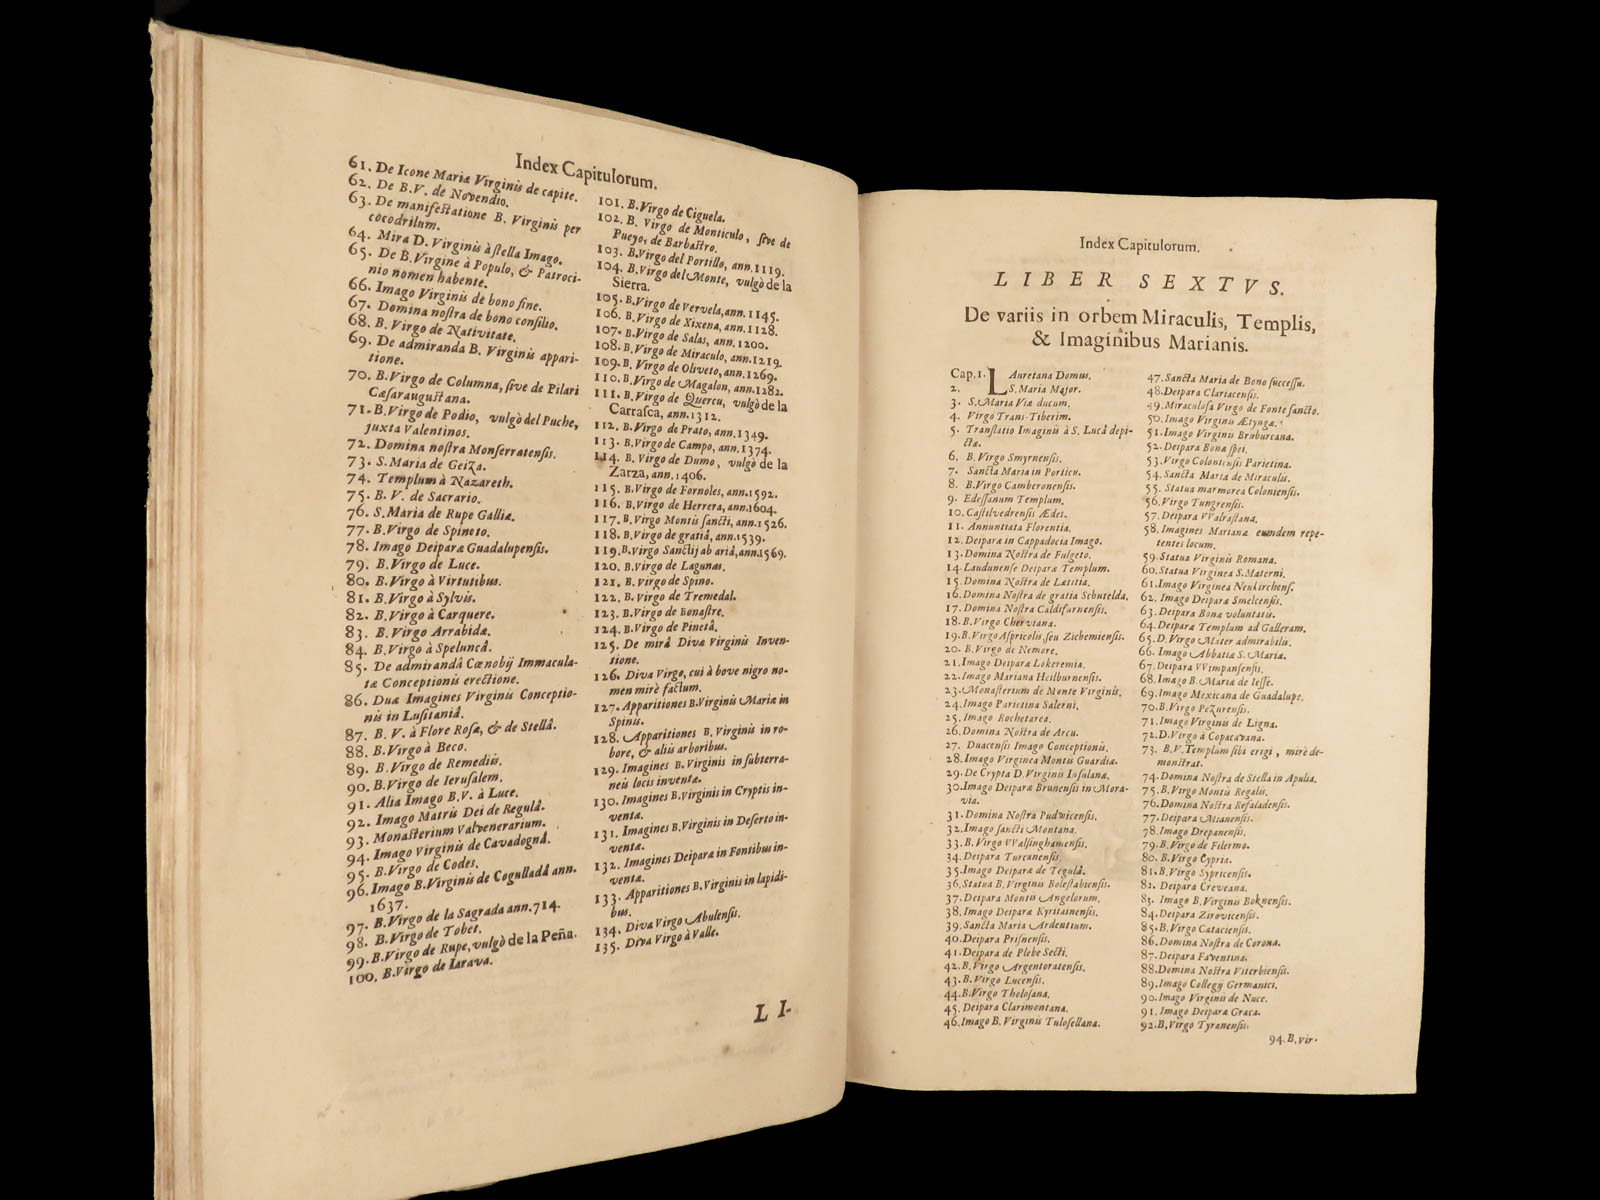 Index Capitulorum.
61. De Icone Mariæ Virginis de capite.
62. De B.V. de Novendio.
63. De manifeſtatione B. Virginis per
cocodrilum.
64. Mira D. Virginis à ſtella Imago.
65. De B. Virgine à Populo, & Patroci-
nio nomen habente.
66. Imago Virginis de bono fine.
67. Domina noſtra de bono conſilio.
68. B. Virgo de Nativitate.
69. De admiranda B. Virginis appari-
tione.
70. B. Virgo de Columna, ſive de Pilari
Cæſarauguſtana.
71. B. Virgo de Podio, vulgò del Puche,
juxta Valentinos.
72. Domina noſtra Monſerratenſis.
73. S. Maria de Geiza.
74. Templum à Nazareth.
75. B. V. de Sacrario.
76. S. Maria de Rupe Galliæ.
77. B. Virgo de Spineto.
78. Imago Deiparæ Guadalupenſis.
79. B. Virgo de Luce.
80. B. Virgo à Virtutibus.
81. B. Virgo à Sylvis.
82. B. Virgo à Carquere.
83. B. Virgo Arrabidæ.
84. B. Virgo à Speluncâ.
85. De admirandâ Cœnobij Immacula-
tæ Conceptionis erectione.
86. Duæ Imagines Virginis Conceptio-
nis in Luſitaniâ.
87. B. V. à Flore Roſæ, & de Stellâ.
88. B. Virgo à Beco.
89. B. Virgo de Remediis.
90. B. Virgo de Ieruſalem.
91. Alia Imago B.V. à Luce.
92. Imago Matris Dei de Regulâ.
93. Monaſterium Valvenerarium.
94. Imago Virginis de Cavadognâ.
95. B. Virgo de Codes.
96. Imago B. Virginis de Cogulladâ ann.
1637.
97. B. Virgo de la Sagrada ann. 714.
98. B. Virgo de Tobet.
99. B. Virgo de Rupe, vulgò de la Peña.
100. B. Virgo de Iarava.
101. B. Virgo de Ciguela.
102. B. Virgo de Monticulo, ſive de
Pueyo, de Barbaſtro.
103. B. Virgo del Portillo, ann. 1119.
104. B. Virgo del Monte, vulgò de la
Sierra.
105. B. Virgo de Vervela, ann. 1145.
106. B. Virgo de Xixena, ann. 1128.
107. B. Virgo de Salas, ann. 1200.
108. B. Virgo de Miraculo, ann. 1219.
109. B. Virgo de Oliveto, ann. 1269.
110. B. Virgo de Magalon, ann. 1282.
111. B. Virgo de Quercu, vulgò de la
Carraſca, ann. 1312.
112. B. Virgo de Prato, ann. 1349.
113. B. Virgo de Campo, ann. 1374.
114. B. Virgo de Dumo, vulgò de la
Zarza, ann. 1406.
115. B. Virgo de Fornoles, ann. 1592.
116. B. Virgo de Herrera, ann. 1604.
117. B. Virgo Montis ſancti, ann. 1526.
118. B. Virgo de gratiâ, ann. 1539.
119. B. Virgo Sanctij ab ariâ, ann. 1569.
120. B. Virgo de Lagunas.
121. B. Virgo de Spino.
122. B. Virgo de Tremedal.
123. B. Virgo de Bonaſtre.
124. B. Virgo de Pinetâ.
125. De mirâ Divæ Virginis Inven-
tione.
126. Diva Virgo, cui à bove nigro no-
men mirè factum.
127. Apparitiones B. Virginis Mariæ in
Spinis.
128. Apparitiones B. Virginis in ro-
bore, & aliis arboribus.
129. Imagines B. Virginis in ſubterra-
neis locis inventæ.
130. Imagines B. Virginis in Cryptis in-
ventæ.
131. Imagines B. Virginis in Deſerto in-
ventæ.
132. Imagines Deiparæ in Fontibus in-
ventæ.
133. Apparitiones B. Virginis in lapidi-
bus.
134. Diva Virgo Abulenſis.
135. Diva Virgo à Valle.
L I-
Index Capitulorum.
LIBER SEXTVS.
De variis in orbem Miraculis, Templis,
& Imaginibus Marianis.
Cap. 1. LAuretana Domus.
2. S. Maria Major.
3. S. Maria Viæ ducum.
4. Virgo Trans-Tiberim.
5. Tranſlatio Imaginis à S. Lucâ depi-
ctæ.
6. B. Virgo Smyrnenſis.
7. Sancta Maria in Porticu.
8. B. Virgo Camberonenſis.
9. Edeſſanum Templum.
10. Caſtilvedrenſis Ædes.
11. Annuntiata Florentiæ.
12. Deiparæ in Cappadocia Imago.
13. Domina Noſtra de Fulgeto.
14. Laudunenſe Deiparæ Templum.
15. Domina Noſtra de Lætitia.
16. Domina Noſtra de gratia Schutelda.
17. Domina Noſtra Caldifurnenſis.
18. B. Virgo Cherviana.
19. B. Virgo Aſpricolis, ſeu Zichemienſis.
20. B. Virgo de Nemore.
21. Imago Deiparæ Lokeremia.
22. Imago Mariana Heilburnenſis.
23. Monaſterium de Monte Virginis.
24. Imago Parietina Salerni.
25. Imago Rochetarea.
26. Domina Noſtra de Arcu.
27. Duacenſis Imago Conceptionis.
28. Imago Virginea Montis Guardiæ.
29. De Crypta D. Virginis Inſulana.
30. Imago Deiparæ Brunenſis in Mora-
via.
31. Domina Noſtra Pudwicenſis.
32. Imago ſancti Montana.
33. B. Virgo VValſinghamenſis.
34. Deipara Turcanenſis.
35. Imago Deiparæ de Tegulâ.
36. Statua B. Virginis Boleſlabienſis.
37. Deipara Montis Angelorum.
38. Imago Deiparæ Kyritainenſis.
39. Sancta Maria Ardentium.
40. Deipara Priſnenſis.
41. Deipara de Plebe Secti.
42. B. Virgo Argentoratenſis.
43. B. Virgo Lucenſis.
44. B. Virgo Tholoſana.
45. Deipara Clarimontana.
46. Imago B. Virginis Tuloſellana.
47. Sancta Maria de Bono ſucceſſu.
48. Deipara Clariacenſis.
49. Miraculoſa Virgo de Fonte ſancto.
50. Imago Virginis Ætyngæ.
51. Imago Virginis Bruburcana.
52. Deipara Bonæ ſpei.
53. Virgo Colonienſis Parietina.
54. Sancta Maria de Miraculis.
55. Statua marmorea Colonienſis.
56. Virgo Tungrenſis.
57. Deipara VValraſtana.
58. Imagines Marianæ eumdem repe-
tentes locum.
59. Statua Virginis Romana.
60. Statua Virginea S. Materni.
61. Imago Virginea Neukirchenſ.
62. Imago Deiparæ Smelcenſis.
63. Deipara Bonæ voluntatis.
64. Deiparæ Templum ad Galleram.
65. D. Virgo Mater admirabilis.
66. Imago Abbatiæ S. Mariæ.
67. Deipara VVimpanſenſis.
68. Imago B. Mariæ de Ieſſe.
69. Imago Mexicana de Guadalupe.
70. B. Virgo Pezurenſis.
71. Imago Virginis de Ligna.
72. D. Virgo à Copacavana.
73. B.V. Templum ſibi erigi, mirè de-
monſtrat.
74. Domina Noſtra de Stella in Apulia.
75. B. Virgo Montis Regalis.
76. Domina Noſtra Refaladenſis.
77. Deipara Mianenſis.
78. Imago Drepanenſis.
79. B. Virgo de Filermo.
80. B. Virgo Cypria.
81. B. Virgo Sypricenſis.
82. Deipara Creveana.
83. Imago B. Virginis Boknenſis.
84. Deipara Zirovicenſis.
85. B. Virgo Catacienſis.
86. Domina Noſtra de Corona.
87. Deipara Faventina.
88. Domina Noſtra Viterbienſis.
89. Imago Collegy Germanici.
90. Imago Virginis de Nuce.
91. Imago Deiparæ Græca.
92. B. Virgo Tyranenſis.
94. B. vir-